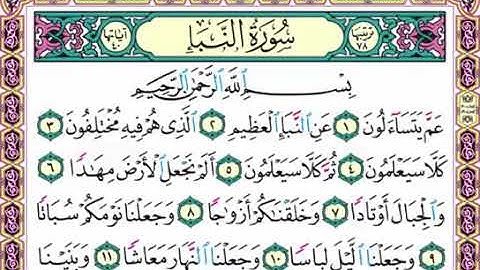 ترتيبها ٧٨ سُورَةُ النَّبَإِ آياتها ٤٠
بِسْمِ اللَّهِ الرَّحْمَٰنِ الرَّحِيمِ
عَمَّ يَتَسَاءَلُونَ ١ عَنِ النَّبَإِ الْعَظِيمِ ٢ الَّذِي هُمْ فِيهِ مُخْتَلِفُونَ ٣
كَلَّا سَيَعْلَمُونَ ٤ ثُمَّ كَلَّا سَيَعْلَمُونَ ٥ أَلَمْ نَجْعَلِ الْأَرْضَ مِهَٰدًا ٦
وَالْجِبَالَ أَوْتَادًا ٧ وَخَلَقْنَاكُمْ أَزْوَاجًا ٨ وَجَعَلْنَا نَوْمَكُمْ سُبَاتًا
٩ وَجَعَلْنَا اللَّيْلَ لِبَاسًا ١٠ وَجَعَلْنَا النَّهَارَ مَعَاشًا ١١ وَبَنَيْنَا